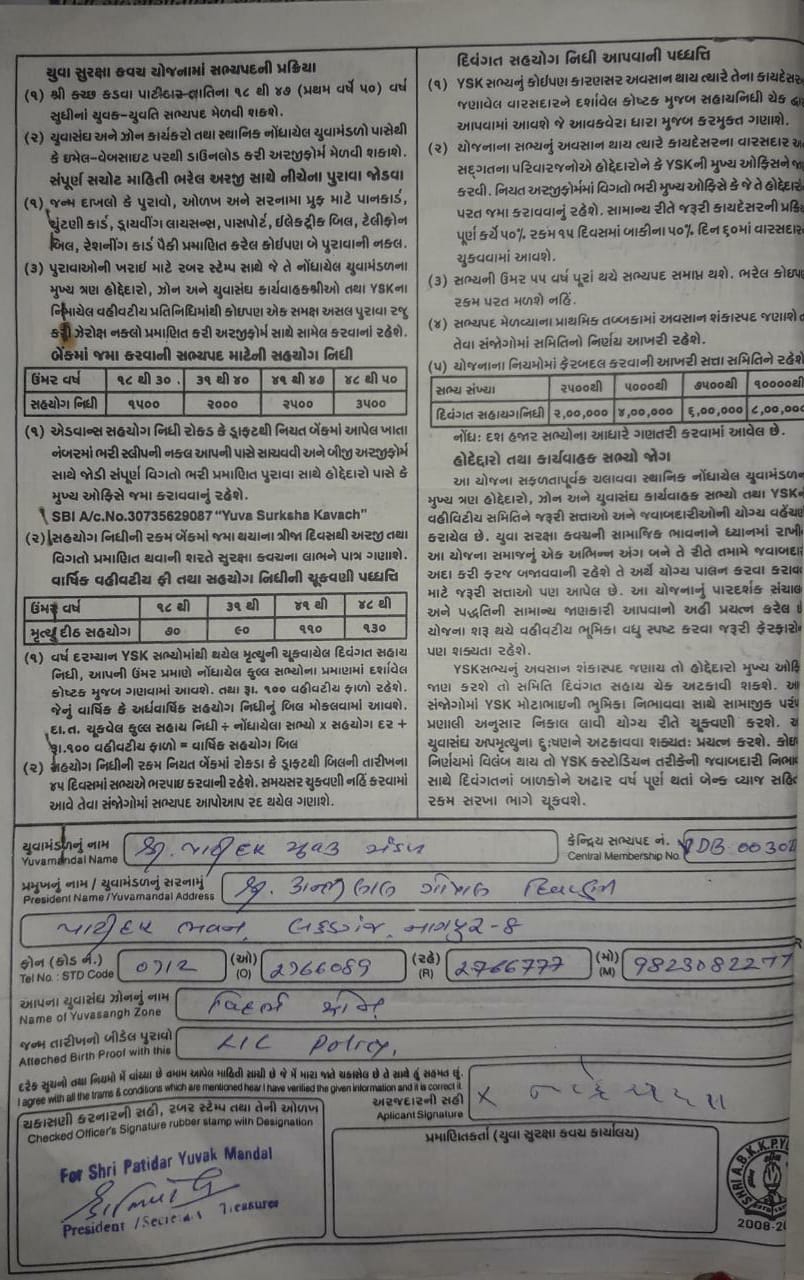 યુવા સુરક્ષા કવચ યોજનામાં સભ્યપદની પ્રક્રિયા
(૧) શ્રી કચ્છ કડવા પાટીદાર જ્ઞાતિના ૧૮ થી ૪૭ (પ્રથમ વર્ષે ૫૦) વર્ષ
સુધીનાં યુવક-યુવતિ સભ્યપદ મેળવી શકશે.
(૨) યુવાસંઘ અને ઝોન કાર્યકરો તથા સ્થાનિક નોંધાયેલ યુવામંડળો પાસેથી
કે ઇમેલ-વેબસાઇટ પરથી ડાઉનલોડ કરી અરજીફોર્મ મેળવી શકાશે.
સંપૂર્ણ સચોટ માહિતી ભરેલ અરજી સાથે નીચેના પુરાવા જોડવા
(૧) જન્મ દાખલો કે પુરાવો, ઓળખ અને સરનામા પ્રુફ માટે પાનકાર્ડ,
ચુંટણી કાર્ડ, ડ્રાયવીંગ લાયસન્સ, પાસપોર્ટ, ઈલેકટ્રીક બિલ, ટેલીફોન
બિલ, રેશનીંગ કાર્ડ પૈકી પ્રમાણિત કરેલ કોઇપણ બે પુરાવાની નકલ.
(૩) પુરાવાઓની ખરાઈ માટે રબર સ્ટેમ્પ સાથે જે તે નોંધાયેલ યુવામંડળના
મુખ્ય ત્રણ હોદ્દેદારો, ઝોન અને યુવાસંઘ કાર્યવાહકશ્રીઓ તથા YSKના
નિમાયેલ વહીવટીય પ્રતિનિધિમાંથી કોઇપણ એક સમક્ષ અસલ પુરાવા રજુ
કરી ઝેરોક્ષ નકલો પ્રમાણિત કરી અરજીફોર્મ સાથે સામેલ કરવાનાં રહેશે.
બેંકમાં જમા કરવાની સભ્યપદ માટેની સહયોગ નિધી
ઉંમર વર્ષ ૧૮ થી ૩૦ ૩૧ થી ૪૦ ૪૧ થી ૪૭ ૪૮ થી ૫૦
સહયોગ નિધી ૧૫૦૦ ૨૦૦૦ ૨૫૦૦ ૩૫૦૦
(૧) એડવાન્સ સહયોગ નિધી રોકડ કે ડ્રાફટથી નિયત બેંકમાં આપેલ ખાતા
નંબરમાં ભરી સ્લીપની નકલ આપની પાસે સાચવવી અને બીજી અરજીફોર્મ
સાથે જોડી સંપૂર્ણ વિગતો ભરી પ્રમાણિત પુરાવા સાથે હોદ્દેદારો પાસે કે
મુખ્ય ઓફિસે જમા કરાવવાનું રહેશે.
SBI A/c.No.30735629087 "Yuva Surksha Kavach"
(૨) સહયોગ નિધીની રકમ બેંકમાં જમા થયાના ત્રીજા દિવસથી અરજી તથા
વિગતો પ્રમાણિત થવાની શરતે સુરક્ષા કવચના લાભને પાત્ર ગણાશે.
વાર્ષિક વહીવટીય ફી તથા સહયોગ નિધીની ચૂકવણી પધ્ધતિ
ઉંમર વર્ષ ૧૮ થી ૩૧ થી ૪૧ થી ૪૮ થી
મૃત્યુ દીઠ સહયોગ ૭૦ ૯૦ ૧૧૦ ૧૩૦
(૧) વર્ષ દરમ્યાન YSK સભ્યોમાંથી થયેલ મૃત્યુની ચૂકવાયેલ દિવંગત સહાય
નિધી, આપની ઉંમર પ્રમાણે નોંધાયેલ કુલ્લ સભ્યોના પ્રમાણમાં દર્શાવેલ
કોષ્ટક મુજબ ગણવામાં આવશે. તથા રૂા. ૧૦૦ વહીવટીય ફાળો રહેશે.
જેનું વાર્ષિક કે અર્ધવાર્ષિક સહયોગ નિધીનું બિલ મોકલવામાં આવશે.
દા.ત. ચૂકવેલ કુલ્લ સહાય નિધી ÷ નોંધાયેલા સભ્યો x સહયોગ દર +
રૂા.૧૦૦ વહીવટીય ફાળો = વાર્ષિક સહયોગ બિલ
(૨) સહયોગ નિધીની રકમ નિયત બેંકમાં રોકડા કે ડ્રાફટથી બિલની તારીખના
૪૫ દિવસમાં સભ્યએ ભરપાઇ કરવાની રહેશે. સમયસર ચુકવણી નહિં કરવામાં
આવે તેવા સંજોગોમાં સભ્યપદ આપોઆપ રદ થયેલ ગણાશે.
દિવંગત સહયોગ નિધી આપવાની પધ્ધતિ
(૧) YSK સભ્યનું કોઇપણ કારણસર અવસાન થાય ત્યારે તેના કાયદેસર
જણાવેલ વારસદારને દર્શાવેલ કોષ્ટક મુજબ સહાયનિધી ચેક
આપવામાં આવશે જે આવકવેરા ધારા મુજબ કરમુકત ગણાશે.
(૨) યોજનાના સભ્યનું અવસાન થાય ત્યારે કાયદેસરના વારસદાર
સદ્‌ગતના પરિવારજનોએ હોદ્દેદારોને કે YSKની મુખ્ય ઓફિસને
કરવી. નિયત અરજીફોર્મમાં વિગતો ભરી મુખ્ય ઓફિસે કે જે તે હોદ્દેદારો
પરત જમા કરાવવાનું રહેશે. સામાન્ય રીતે જરૂરી કાયદેસરની
પૂર્ણ કર્યે ૫૦% રકમ ૧૫ દિવસમાં બાકીના ૫૦% દિન ૬૦માં વારસદાર
ચુકવવામાં આવશે.
(૩) સભ્યની ઉમર ૫૫ વર્ષ પૂરાં થયે સભ્યપદ સમાપ્ત થશે. ભરેલ કોઇપણ
રકમ પરત મળશે નહિં.
(૪) સભ્યપદ મેળવ્યાના પ્રાથમિક તબ્બકામાં અવસાન શંકાસ્પદ જણાશે
તેવા સંજોગોમાં સમિતિનો નિર્ણય આખરી રહેશે.
(૫) યોજનાના નિયમોમાં ફેરબદલ કરવાની આખરી સત્તા સમિતિને રહેશે
સભ્ય સંખ્યા ૨૫૦૦થી ૫૦૦૦થી ૭૫૦૦થી ૧૦૦૦૦થી
દિવંગત સહાયગનિધી ૨,૦૦,૦૦૦ ૪,૦૦,૦૦૦ ૬,૦૦,૦૦૦ ૮,૦૦,૦૦
નોંધ: દશ હજાર સભ્યોના આધારે ગણતરી કરવામાં આવેલ છે.
હોદેદારો તથા કાર્યવાહક સભ્યો જોગ
આ યોજના સફળતાપૂર્વક ચલાવવા સ્થાનિક નોંધાયેલ યુવામંડળ
મુખ્ય ત્રણ હોદેદારો, ઝોન અને યુવાસંઘ કાર્યવાહક સભ્યો તથા YSK
વહીવટીય સમિતિને જરૂરી સત્તાઓ અને જવાબદારીઓની યોગ્ય વહેંચણી
કરાયેલ છે. યુવા સુરક્ષા કવચની સામાજિક ભાવનાને ધ્યાનમાં
આ યોજના સમાજનું એક અભિન્ન અંગ બને તે રીતે તમામે જવાબદારી
અદા કરી ફરજ બજાવવાની રહેશે તે અર્થે યોગ્ય પાલન કરવા
માટે જરૂરી સત્તાઓ પણ આપેલ છે. આ યોજનાનું પારદર્શક
અને પદ્ધતિની સામાન્ય જાણકારી આપવાનો અહી પ્રયત્ન કરેલ
યોજના શરૂ થયે વહીવટીય ભૂમિકા વધુ સ્પષ્ટ કરવા જરૂરી ફેરફારો
પણ શકયતા રહેશે.
YSKસભ્યનું અવસાન શંકાસ્પદ જણાય તો હોદેદારો મુખ્ય
જાણ કરશે તો સમિતિ દિવંગત સહાય ચેક અટકાવી શકશે.
સંજોગોમાં YSK મોટાભાઇની ભુમિકા નિભાવવા સાથે સામાજીક
પ્રણાલી અનુસાર નિકાલ લાવી યોગ્ય રીતે ચૂકવણી કરશે.
યુવાસંઘ અપમૃત્યુના દુઃષણને અટકાવવા શક્યતઃ પ્રયત્ન કરશે.
નિર્ણયમાં વિલંબ થાય તો YSK કસ્ટોડિયન તરીકેની જવાબદારી
સાથે દિવંગતનાં બાળકોને અઢાર વર્ષ પૂર્ણ થતાં બેન્ક વ્યાજ
રકમ સરખા ભાગે ચૂકવશે.
યુવામંડળનું નામ
Yuvamandal Name શ્રી. પાટીદાર યુવક મંડળ
કેન્દ્રિય સભ્યપદ નં.
Central Membership No.
પ્રમુખનું નામ / યુવામંડળનું સરનામું
President Name /Yuvamandal Address
પાટીદાર ભવન, લકડગંજ, નાગપુર-૮
ફોન (કોડ નં.)
Tel No. : STD Code 0712 (ઓ) (O) 2766089 (રહે) (R) 2766777 (મો) (M)
આપના યુવાસંઘ ઝોનનું નામ
Name of Yuvasangh Zone વિદર્ભ ઝોન
જન્મ તારીખનો બીડેલ પુરાવો
Atteched Birth Proof with this LIC Policy,
દરેક સુચનો તથા નિયમો મેં વાંચ્યા છે તમામ આપેલ માહિતી સાચી છે જે મેં મારા જાતે ચકાસેલ છે તે સાથે હું સહમત છું.
I agree with all the trams & conditions which are mentioned hear I have verified the given information and it is correct it
અરજદારની સહી
Aplicant Signature X
ચકાસણી કરનારની સહી, રબર સ્ટેમ્પ તથા તેની ઓળખ
Checked Officer's Signature rubber stamp with Designation
For Shri Patidar Yuvak Mandal
President / Secretary Treasurer
પ્રમાણિતકર્તા (યુવા સુરક્ષા કવચ કાર્યાલય)
SHRI A.B.K.K.P.Y.
2008-20